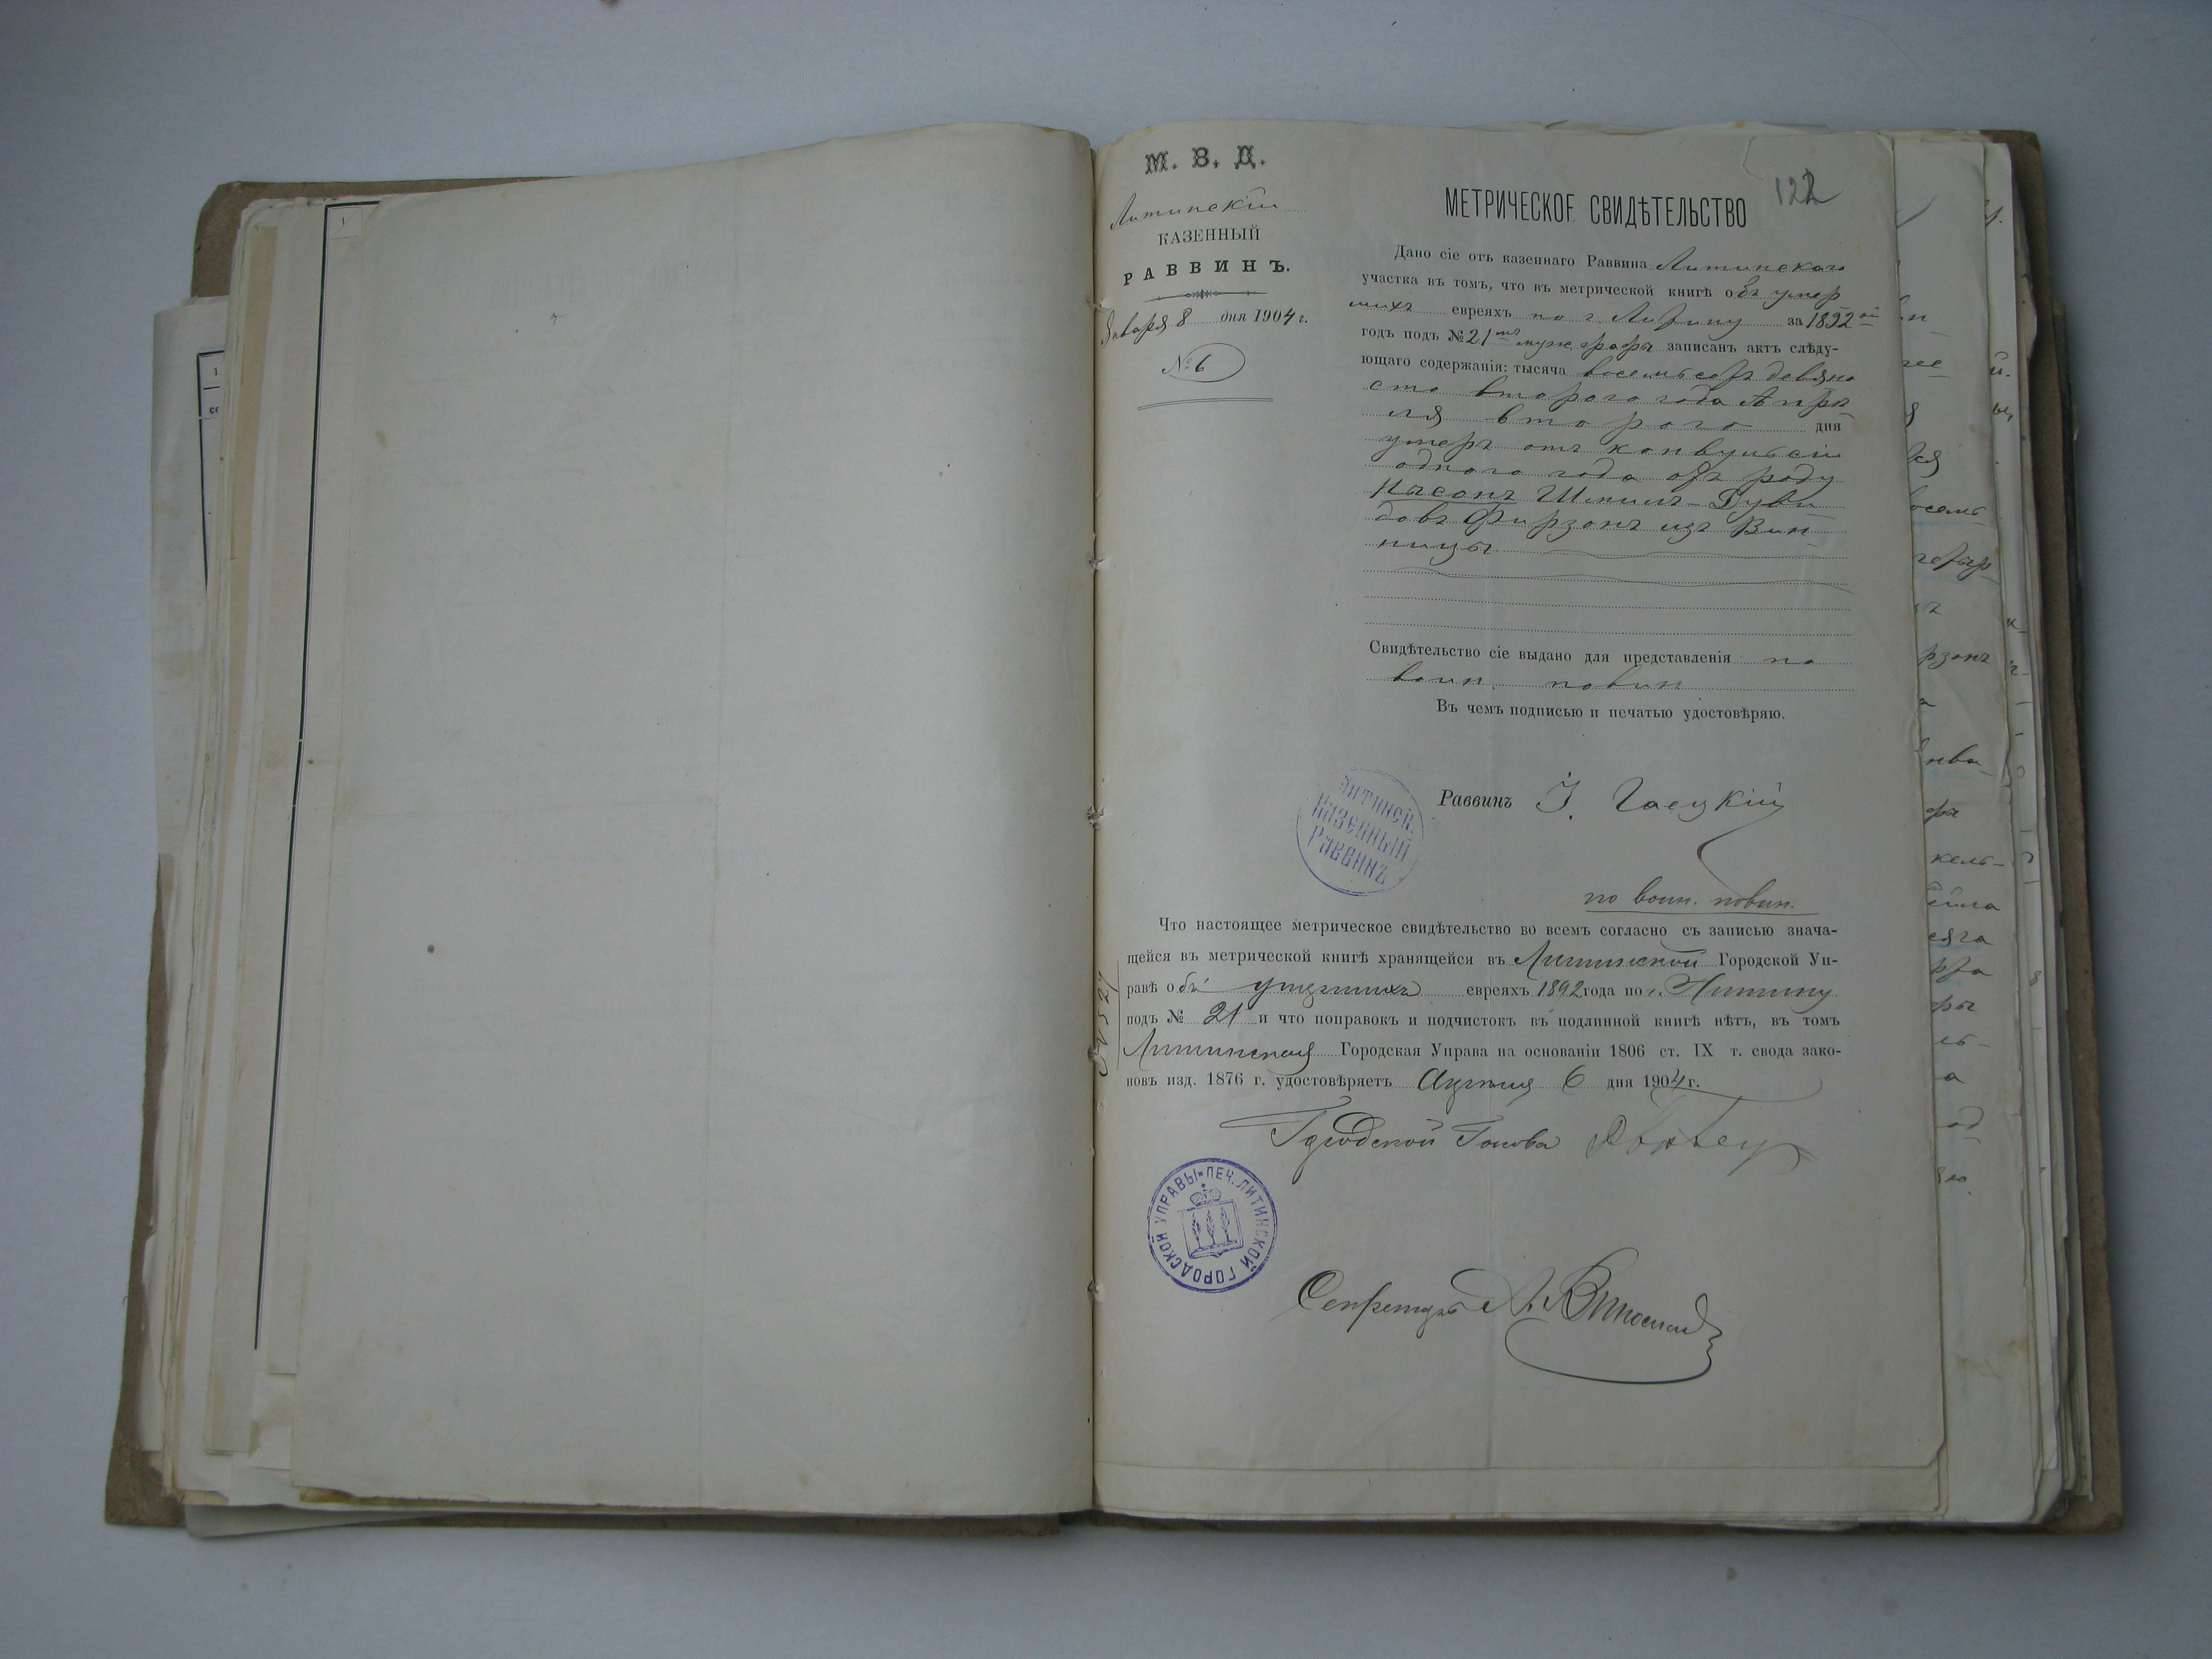 М. В. Д.
Литинскій
КАЗЕННЫЙ
РАВВИНЪ.
Января 8 дня 1904 г.
№ 6
122
МЕТРИЧЕСКОЕ СВИДѢТЕЛЬСТВО
Дано сіе отъ казеннаго Раввина Литинскаго
участка въ томъ, что въ метрической книгѣ объ умер
шихъ евреяхъ по г. Литину за 1892 ой
годъ подъ № 21 муж. графы записанъ актъ слѣду-
ющаго содержанія: тысяча восемьсотъ девяно
сто второго года Апрѣ
ля второго дня
умеръ отъ конвульсіи
одного года отъ роду
Нысонъ Шмиль-Дуви
довъ Фирзонъ изъ Вин
ницы
Свидѣтельство сіе выдано для представленія по
воин. повин
Въ чемъ подписью и печатью удостовѣряю.
Раввинъ І. Гаецкій
ЛИТИНСК.
КАЗЕННЫЙ
РАВВИНЪ
по воин. повин.
Что настоящее метрическое свидѣтельство во всемъ согласно съ записью знача-
щейся въ метрической книгѣ хранящейся въ Литинской Городской Уп-
равѣ объ умершихъ евреяхъ 1892 года по г. Литину
подъ № 21 и что поправокъ и подчистокъ въ подлинной книгѣ нѣтъ, въ томъ
Литинская Городская Управа на основаніи 1806 ст. IX т. свода зако-
новъ изд. 1876 г. удостовѣряетъ Апрѣля 6 дня 1904 г.
Городской Голова
ПЕЧ. ЛИТИНСКОЙ ГОРОДСКОЙ УПРАВЫ
Секретарь А.